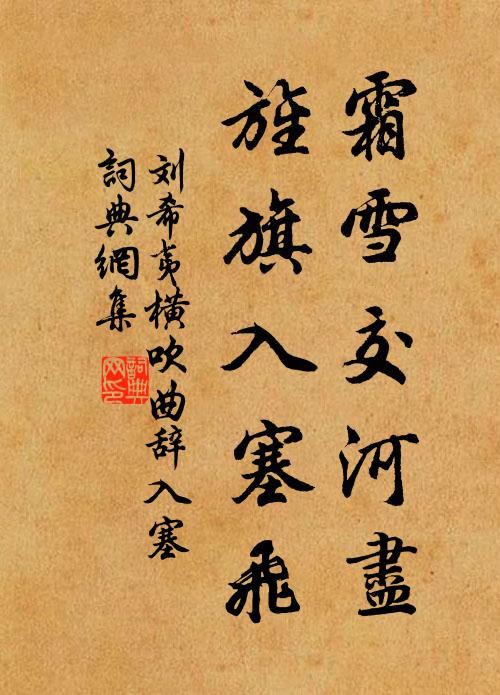 霜雪交河盡
旌旗入塞飛
刘希夷横吹曲辞入塞
詞典網集
詞典网印